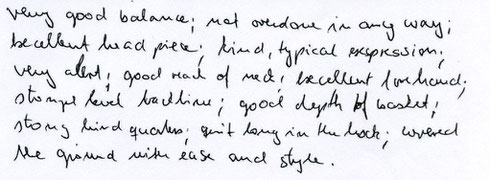 very good balance; not overdone in any way;
excellent head piece; kind, typical expression;
very alert; good reach of neck; excellent forehand;
strong level backline; good depth of basket;
strong hind quarters; quit long in the hock; covered
the ground with ease and style.